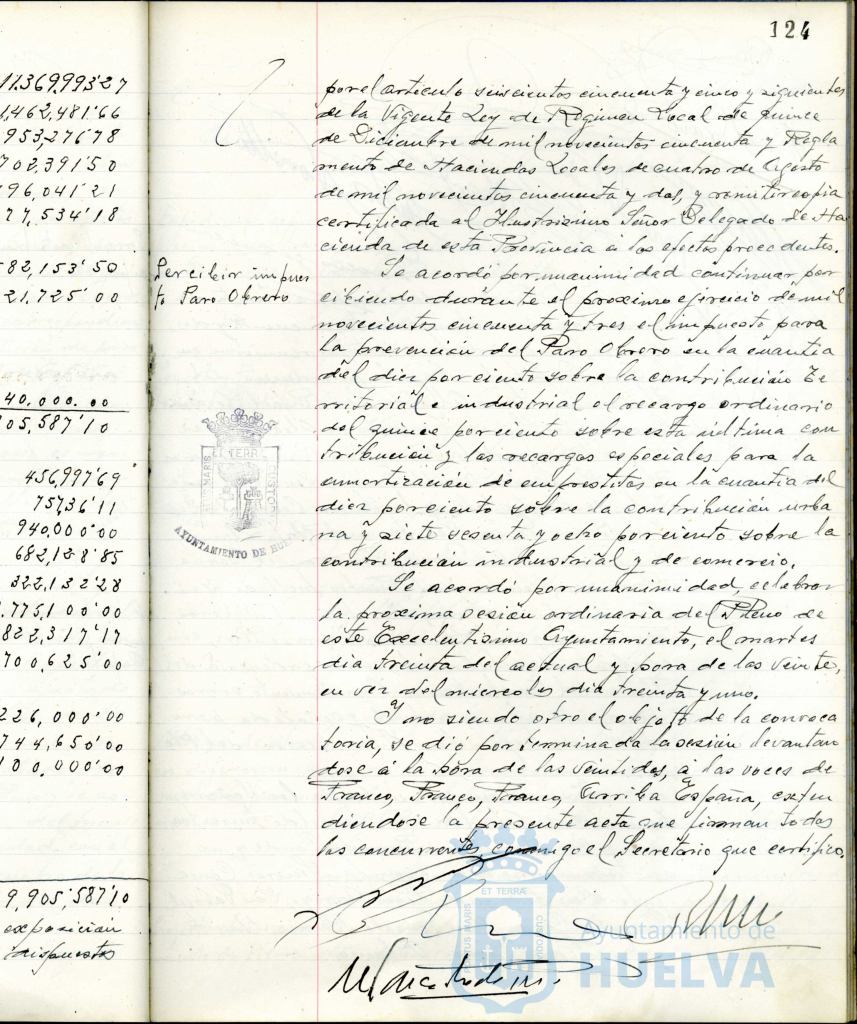 124
11.369,993'27
1,462,481'66
953,276'78
702,391'50
96,041'21
77,534'18
82,153'50
21.725'00
40.000.00
05,587'10
456,997'69
75736'11
940,000'00
682,128'85
322,132'28
.775,100'00
822,317'17
700,625'00
226,000'00
744,650'00
100,000'00
9,905,587'10
exposición
dispuestos
por el articulo seiscientos cincuenta y cinco y siguientes
de la Vigente Ley de Regimen Local de quince
de Diciembre de mil novecientos cincuenta y Regla
mento de Haciendas Locales de cuatro de Agosto
de mil novecientos cincuenta y dos, y remitir copia
certificada al Ilustrisimo Señor Delegado de Ha
cienda de esta Provincia a los efectos procedentes.
Percibir impues
to Paro Obrero
Se acordó por unanimidad continuar per
cibiendo durante el proximo ejercicio de mil
novecientos cincuenta y tres el impuesto para
la prevención del Paro Obrero en la cuantia
del diez por ciento sobre la contribución Te
rritorial e industrial el recargo ordinario
del quince por ciento sobre esta última con
tribución y los recargos especiales para la
amortización de emprestitos en la cuantia del
diez por ciento sobre la contribución urba
na y siete sesenta y ocho por ciento sobre la
contribución industrial y de comercio.
Se acordó por unanimidad, celebrar
la proxima sesión ordinaria del Pleno de
este Excelentisimo Ayuntamiento, el martes
dia treinta del actual y hora de las veinte,
en vez del miercoles dia treinta y uno.
Y no siendo otro el objeto de la convoca
toria, se dió por terminada la sesión levantan
dose á la hora de las veintidos, á las voces de
Franco, Franco, Franco, Arriba España, exten
diendose la presente acta que firman todos
los concurrentes conmigo el Secretario que certifico.
ET TERRA
CUSTO
AYUNTAMIENTO DE HUELVA
PORTUS MARIS
ET TERRÆ
CUSTODIA
Ayuntamiento de
HUELVA